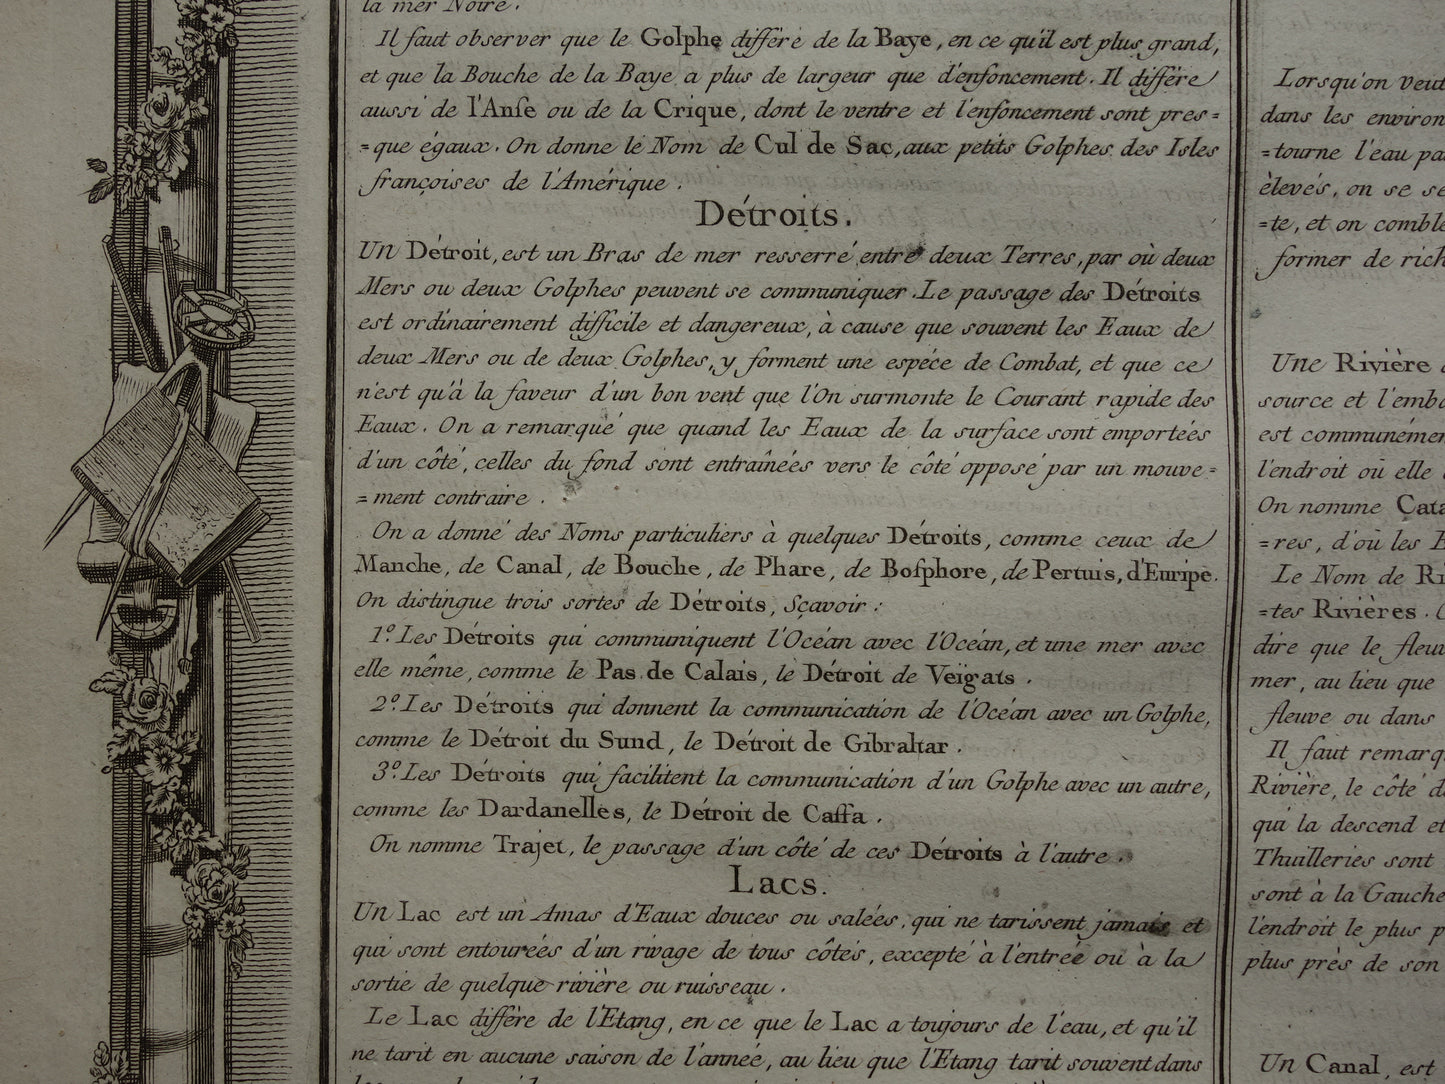 la mer Noire.
Il faut observer que le Golphe différe de la Baye, en ce qu'il est plus grand,
et que la Bouche de la Baye a plus de largeur que d'enfoncement. Il différe
aussi de l'Anse ou de la Crique, dont le ventre et l'enfoncement sont pres=
=que égaux. On donne le Nom de Cul de Sac, aux petits Golphes des Isles
françoises de l'Amérique.
Détroits.
Un Détroit, est un Bras de mer resserré entre deux Terres, par où deux
Mers ou deux Golphes peuvent se communiquer. Le passage des Détroits
est ordinairement difficile et dangereux, à cause que souvent les Eaux de
deux Mers ou de deux Golphes, y forment une espéce de Combat, et que ce
n'est qu'à la faveur d'un bon vent que l'On surmonte le Courant rapide des
Eaux. On a remarqué que quand les Eaux de la surface sont emportées
d'un côté, celles du fond sont entraînées vers le côté opposé par un mouve=
=ment contraire.
On a donné des Noms particuliers à quelques Détroits, comme ceux de
Manche, de Canal, de Bouche, de Phare, de Bosphore, de Pertuis, d'Euripe.
On distingue trois sortes de Détroits, Sçavoir:
1.º Les Détroits qui communiquent l'Océan avec l'Océan, et une mer avec
elle même, comme le Pas de Calais, le Détroit de Veigats.
2.º Les Détroits qui donnent la communication de l'Océan avec un Golphe,
comme le Détroit du Sund, le Détroit de Gibraltar.
3.º Les Détroits qui facilitent la communication d'un Golphe avec un autre,
comme les Dardanelles, le Détroit de Caffa.
On nomme Trajet, le passage d'un côté de ces Détroits à l'autre.
Lacs.
Un Lac est un Amas d'Eaux douces ou salées, qui ne tarissent jamais et
qui sont entourées d'un rivage de tous côtés, excepté à l'entrée ou à la
sortie de quelque rivière ou ruisseau.
Le Lac différe de l'Etang, en ce que le Lac a toujours de l'eau, et qu'il
ne tarit en aucune saison de l'année, au lieu que l'Etang tarit souvent dans
Lorsqu'on veut
dans les environ
=tourne l'eau pa
èlevés, on se se
=te, et on comble
former de rich
Une Rivière
source et l'emb
est communémen
l'endroit où elle
On nomme Cata
=res, d'où les E
Le Nom de Ri
=tes Rivières.
dire que le fleu
mer, au lieu que
fleuve ou dans
Il faut remarq
Rivière, le côté d
qui la descend et
Thuilleries sont
sont à la Gauche
l'endroit le plus p
plus près de son
Un Canal, est